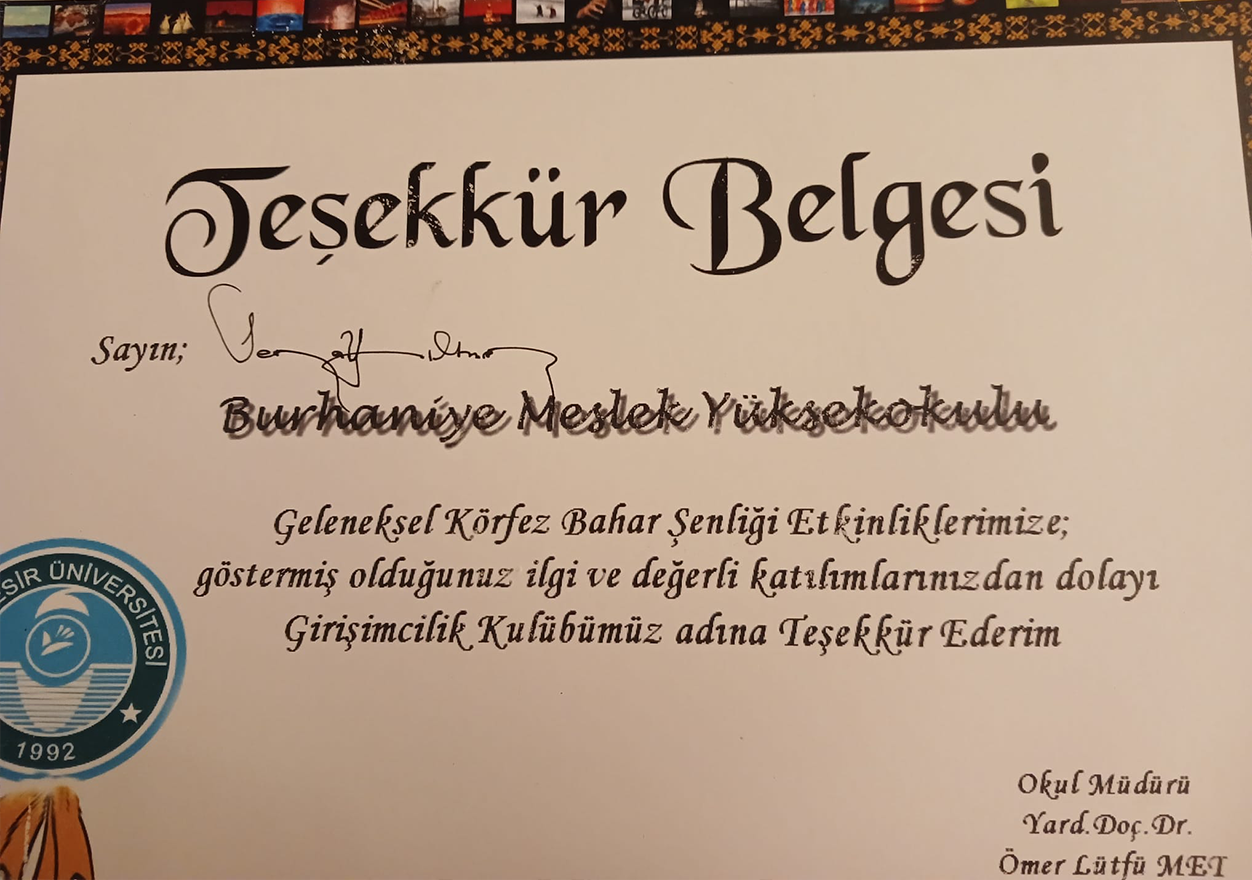 Teşekkür Belgesi
Sayın;
Burhaniye Meslek Yüksekokulu
Geleneksel Körfez Bahar Şenliği Etkinliklerimize;
göstermiş olduğunuz ilgi ve değerli katılımlarınızdan dolayı
Girişimcilik Kulübümüz adına Teşekkür Ederim
ESİR ÜNİVERSİTESİ
1992
Okul Müdürü
Yard.Doç.Dr.
Ömer Lütfü MET